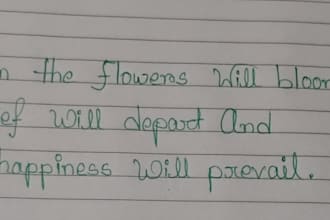 n the flowers will bloom
ef will depart and
happiness will prevail.